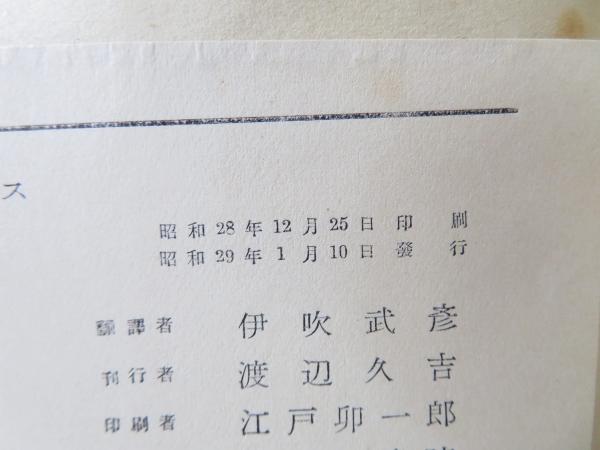 ス
昭和28年12月25日印刷
昭和29年1月10日發行
飜譯者 伊吹武彦
刊行者 渡辺久吉
印刷者 江戸卯一郎